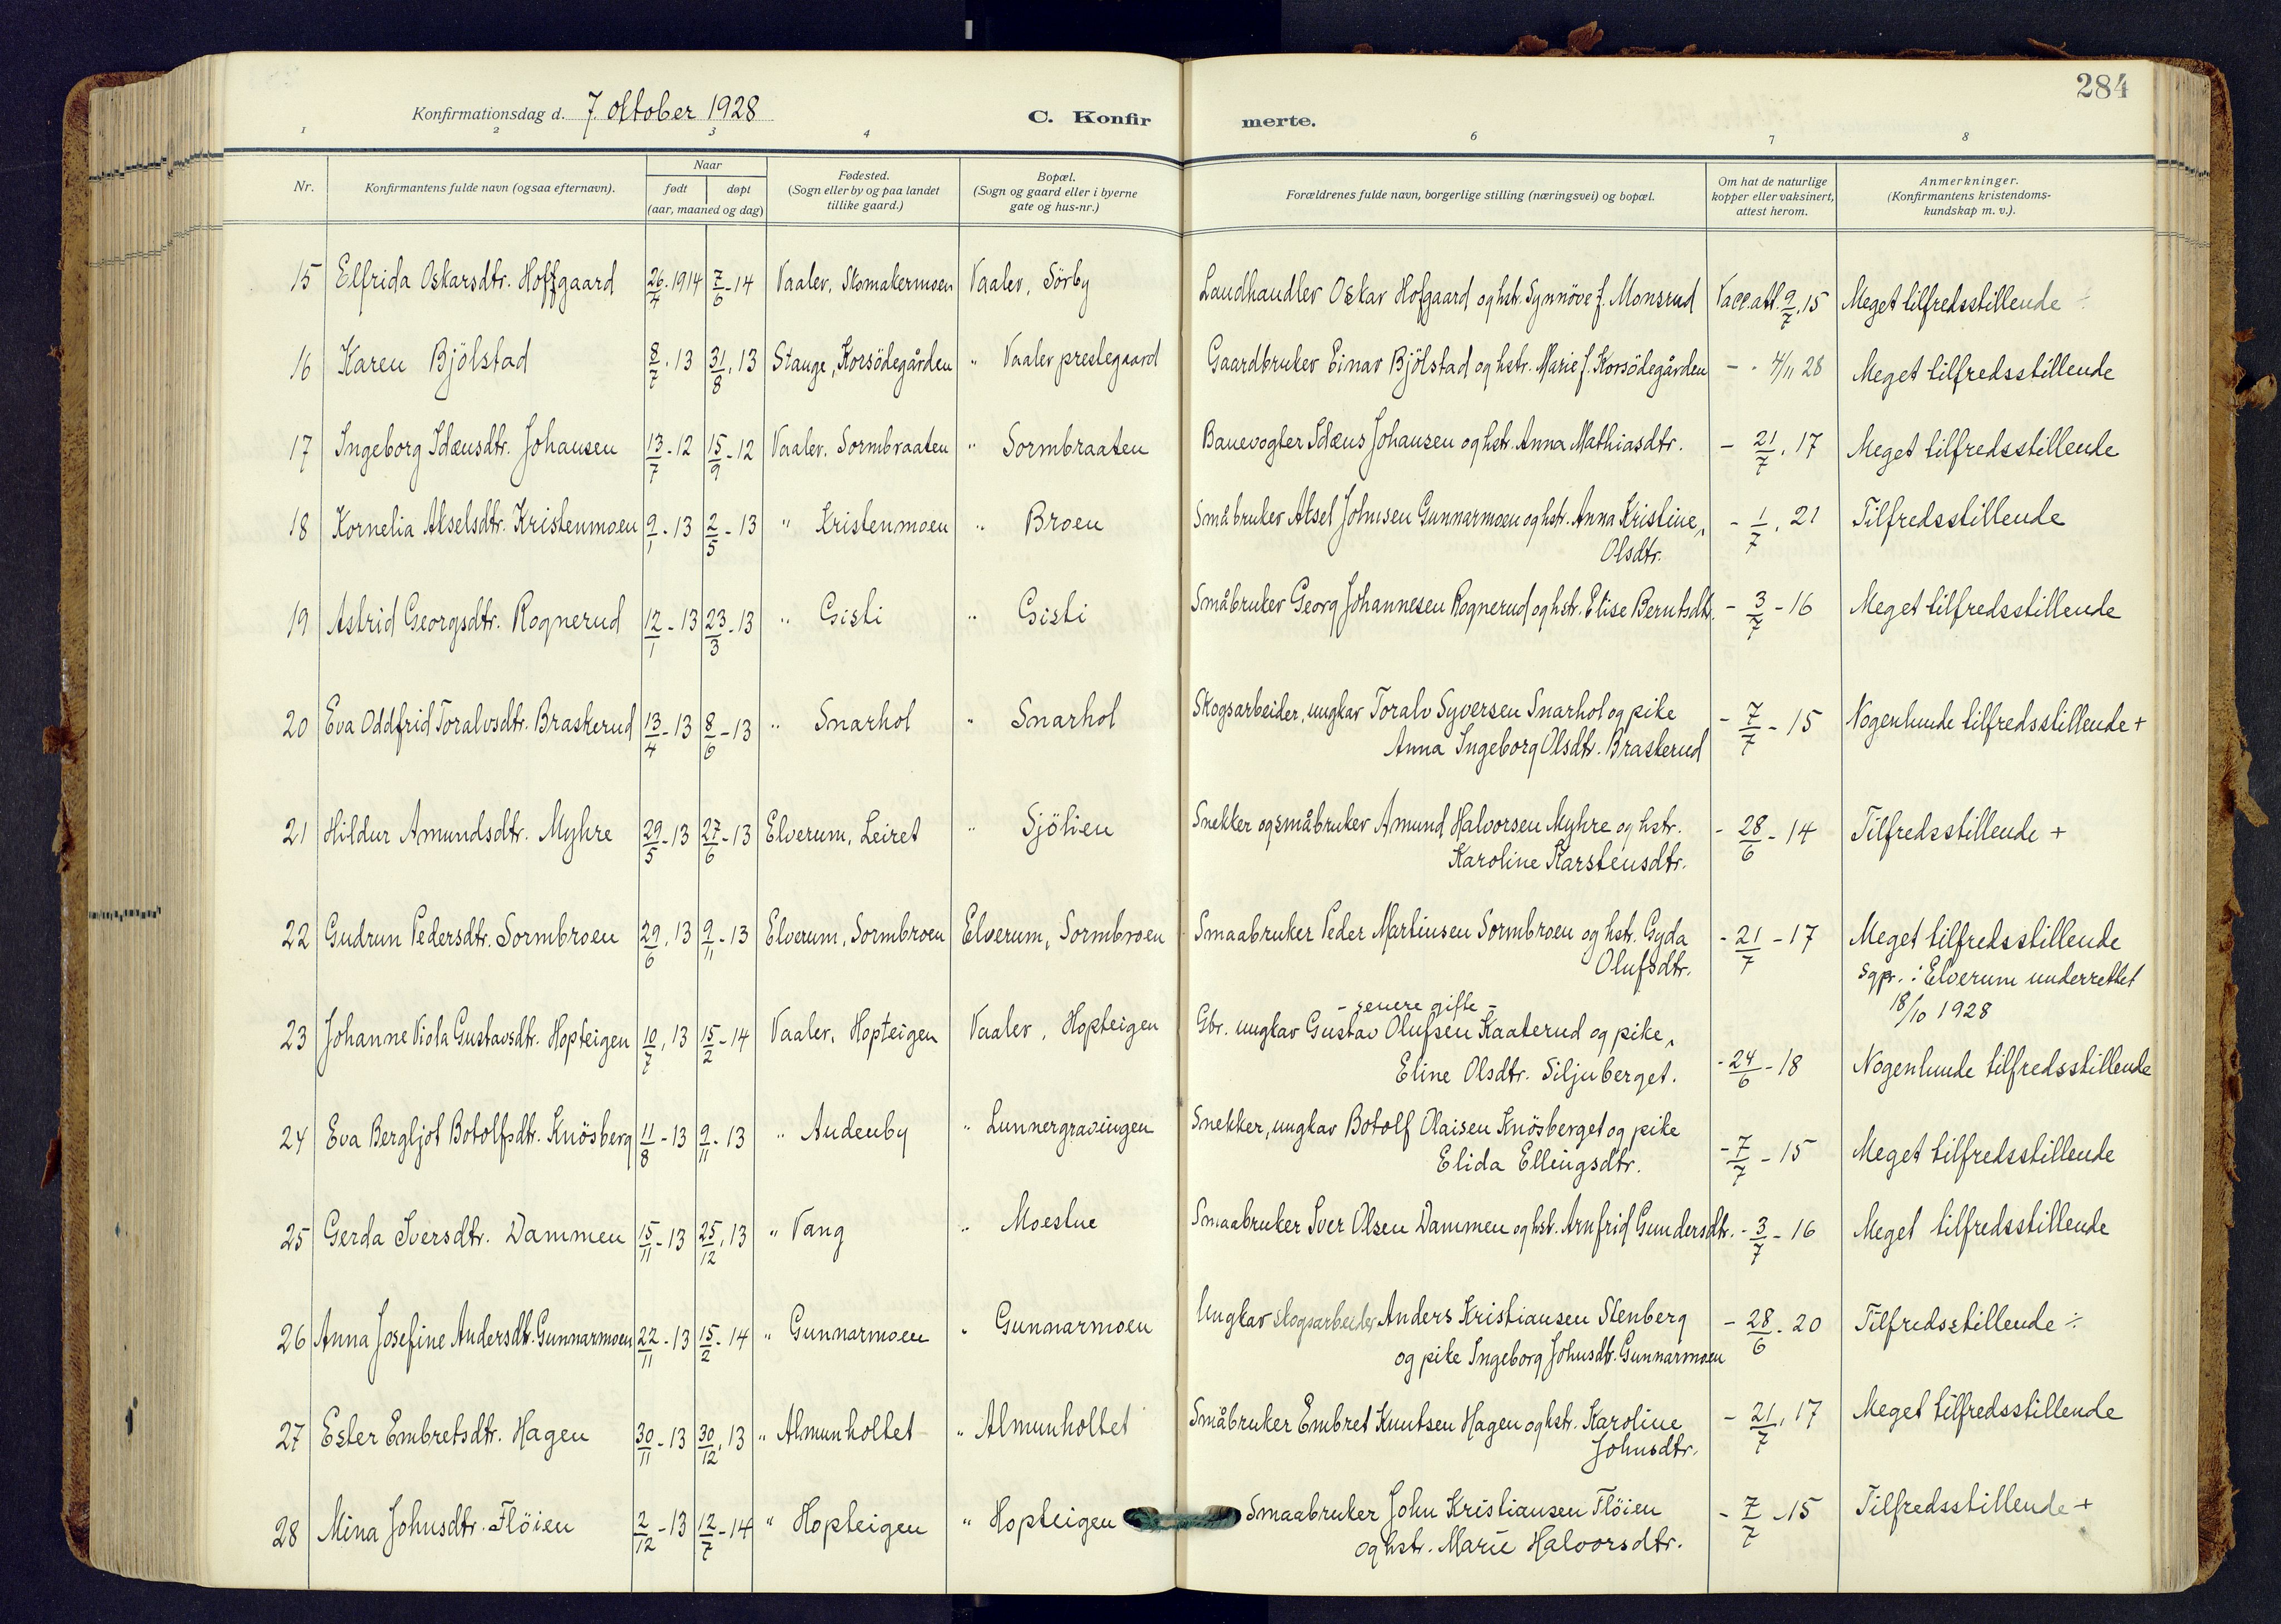 284
Konfirmationsdag d. 7. oktober 1928
C. Konfirmerte.
1 2 3 4 6 7 8
Nr.
Konfirmantens fulde navn (ogsaa efternavn).
Naar
født
døpt
(aar, maaned og dag)
Fødested.
(Sogn eller by og paa landet
tillike gaard.)
Bopæl.
(Sogn og gaard eller i byerne
gate og hus-nr.)
Forældrenes fulde navn, borgerlige stilling (næringsvei) og bopæl.
Om hat de naturlige
kopper eller vaksinert,
attest herom.
Anmerkninger.
(Konfirmantens kristendoms-
kundskap m. v.).
15 Elfrida Oskarsdtr. Hoffgaard 26/4. 1914 7/6 - 14 Vaaler, Skomakermoen Vaaler, Sörby Landhandler Oskar Hofgaard og hstr. Synnöve f. Monsrud Vacc.att. 9/7. 15 Meget tilfredsstillende ÷
16 Karen Bjölstad 8/7. 13 31/8. 13 Stange, Korsödegården " Vaaler prestegaard Gaardbruker Einar Bjölstad og hstr. Marie f. Korsödegården - - 4/11 28 Meget tilfredsstillende
17 Ingeborg Idæusdtr. Johansen 13/7 - 12 15/9 - 12 Vaaler. Sormbraaten " Sormbraaten Banevogter Idæus Johansen og hstr. Anna Mathiasdtr. - 21/7. 17 Meget tilfredsstillende
18 Kornelia Akselsdtr. Kristenmoen 9/1 - 13 2/5 - 13 " Kristenmoen " Broen Småbruker Aksel Johnsen Gunnarmoen og hstr. Anna Kristine, - 1/7. 21 Tilfredsstillende
Olsdtr.
19 Astrid Georgsdtr. Rognerud 12/1 - 13 23/3 - 13 " Gisti " Gisti Småbruker Georg Johannesen Rognerud og hstr. Elise Berntsdtr. - 3/7 - 16 Meget tilfredsstillende
20 Eva Oddfrid Toralvsdtr. Braskerud 13/4 - 13 8/6 - 13 " Snarhol " Snarhol Skogsarbeider, ungkar Toralv Syversen Snarhol og pike - 7/7 - 15 Nogenlunde tilfredsstillende +
Anna Ingeborg Olsdtr. Braskerud
21 Hildur Amundsdtr. Myhre 29/5 - 13 27/6 - 13 Elverum, Leiret " Sjölien Snekker og småbruker Amund Halvorsen Myhre og hstr. - 28/6 - 14 Tilfredsstillende +
Karoline Karstensdtr.
22 Gudrun Pedersdtr. Sormbroen 29/6. 13 9/11 - 13 Elverum, Sormbroen Elverum, Sormbroen Smaabruker Peder Martinsen Sormbroen og hstr. Gyda - 21/7 - 17 Meget tilfredsstillende
Olufsdtr.
sgpr. i Elverum underrettet
18/10 1928
- senere gifte -
23 Johanne Viola Gustavsdtr. Hopteigen 10/7. 13 15/2 - 14 Vaaler. Hopteigen Vaaler, Hopteigen Gbr. ungkar Gustav Olufsen Kaaterud og pike,
Eline Olsdtr. Siljuberget. - 24/6 - 18 Nogenlunde tilfredsstillende
24 Eva Bergljot Botolfsdtr. Knösberg 11/8 - 13 9/11 - 13 " Audenby " Lunnergravingen Snekker, ungkar Botolf Olaisen Knösberget og pike - 7/7 - 15 Meget tilfredsstillende
Elida Ellingsdtr.
25 Gerda Iversdtr. Dammen 15/11 - 13 25/12. 13 " Vang " Moestue Smaabruker Iver Olsen Dammen og hstr. Arnfrid Gundersdtr. - 3/7 - 16 Meget tilfredsstillende
26 Anna Josefine Andersdtr. Gunnarmoen 22/11 - 13 15/2 - 14 " Gunnarmoen " Gunnarmoen Ungkar skogsarbeider Anders Kristiansen Stenberg - 28/6. 20 Tilfredsstillende ÷
og pike Ingeborg Johnsdtr. Gunnarmoen
27 Ester Embretsdtr. Hagen 30/11 - 13 30/12. 13 " Almunholtet " Almunholtet Småbruker Embret Knutsen Hagen og hstr. Karoline - 21/7. 17 Meget tilfredsstillende
Johnsdtr.
28 Mina Johnsdtr. Flöien 2/12 - 13 12/7 - 14 " Hopteigen " Hopteigen Smaabruker John Kristiansen Flöien - 7/7 - 15 Tilfredsstillende +
og hstr. Marie Halvorsdtr.